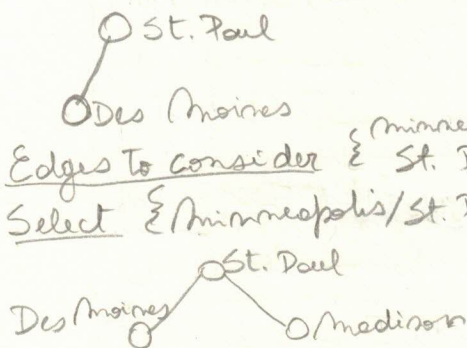 St. Paul
Des Moines
Edges to consider { minne
St.
Select { Minneapolis/St.
St. Paul
Des Moines
Madison